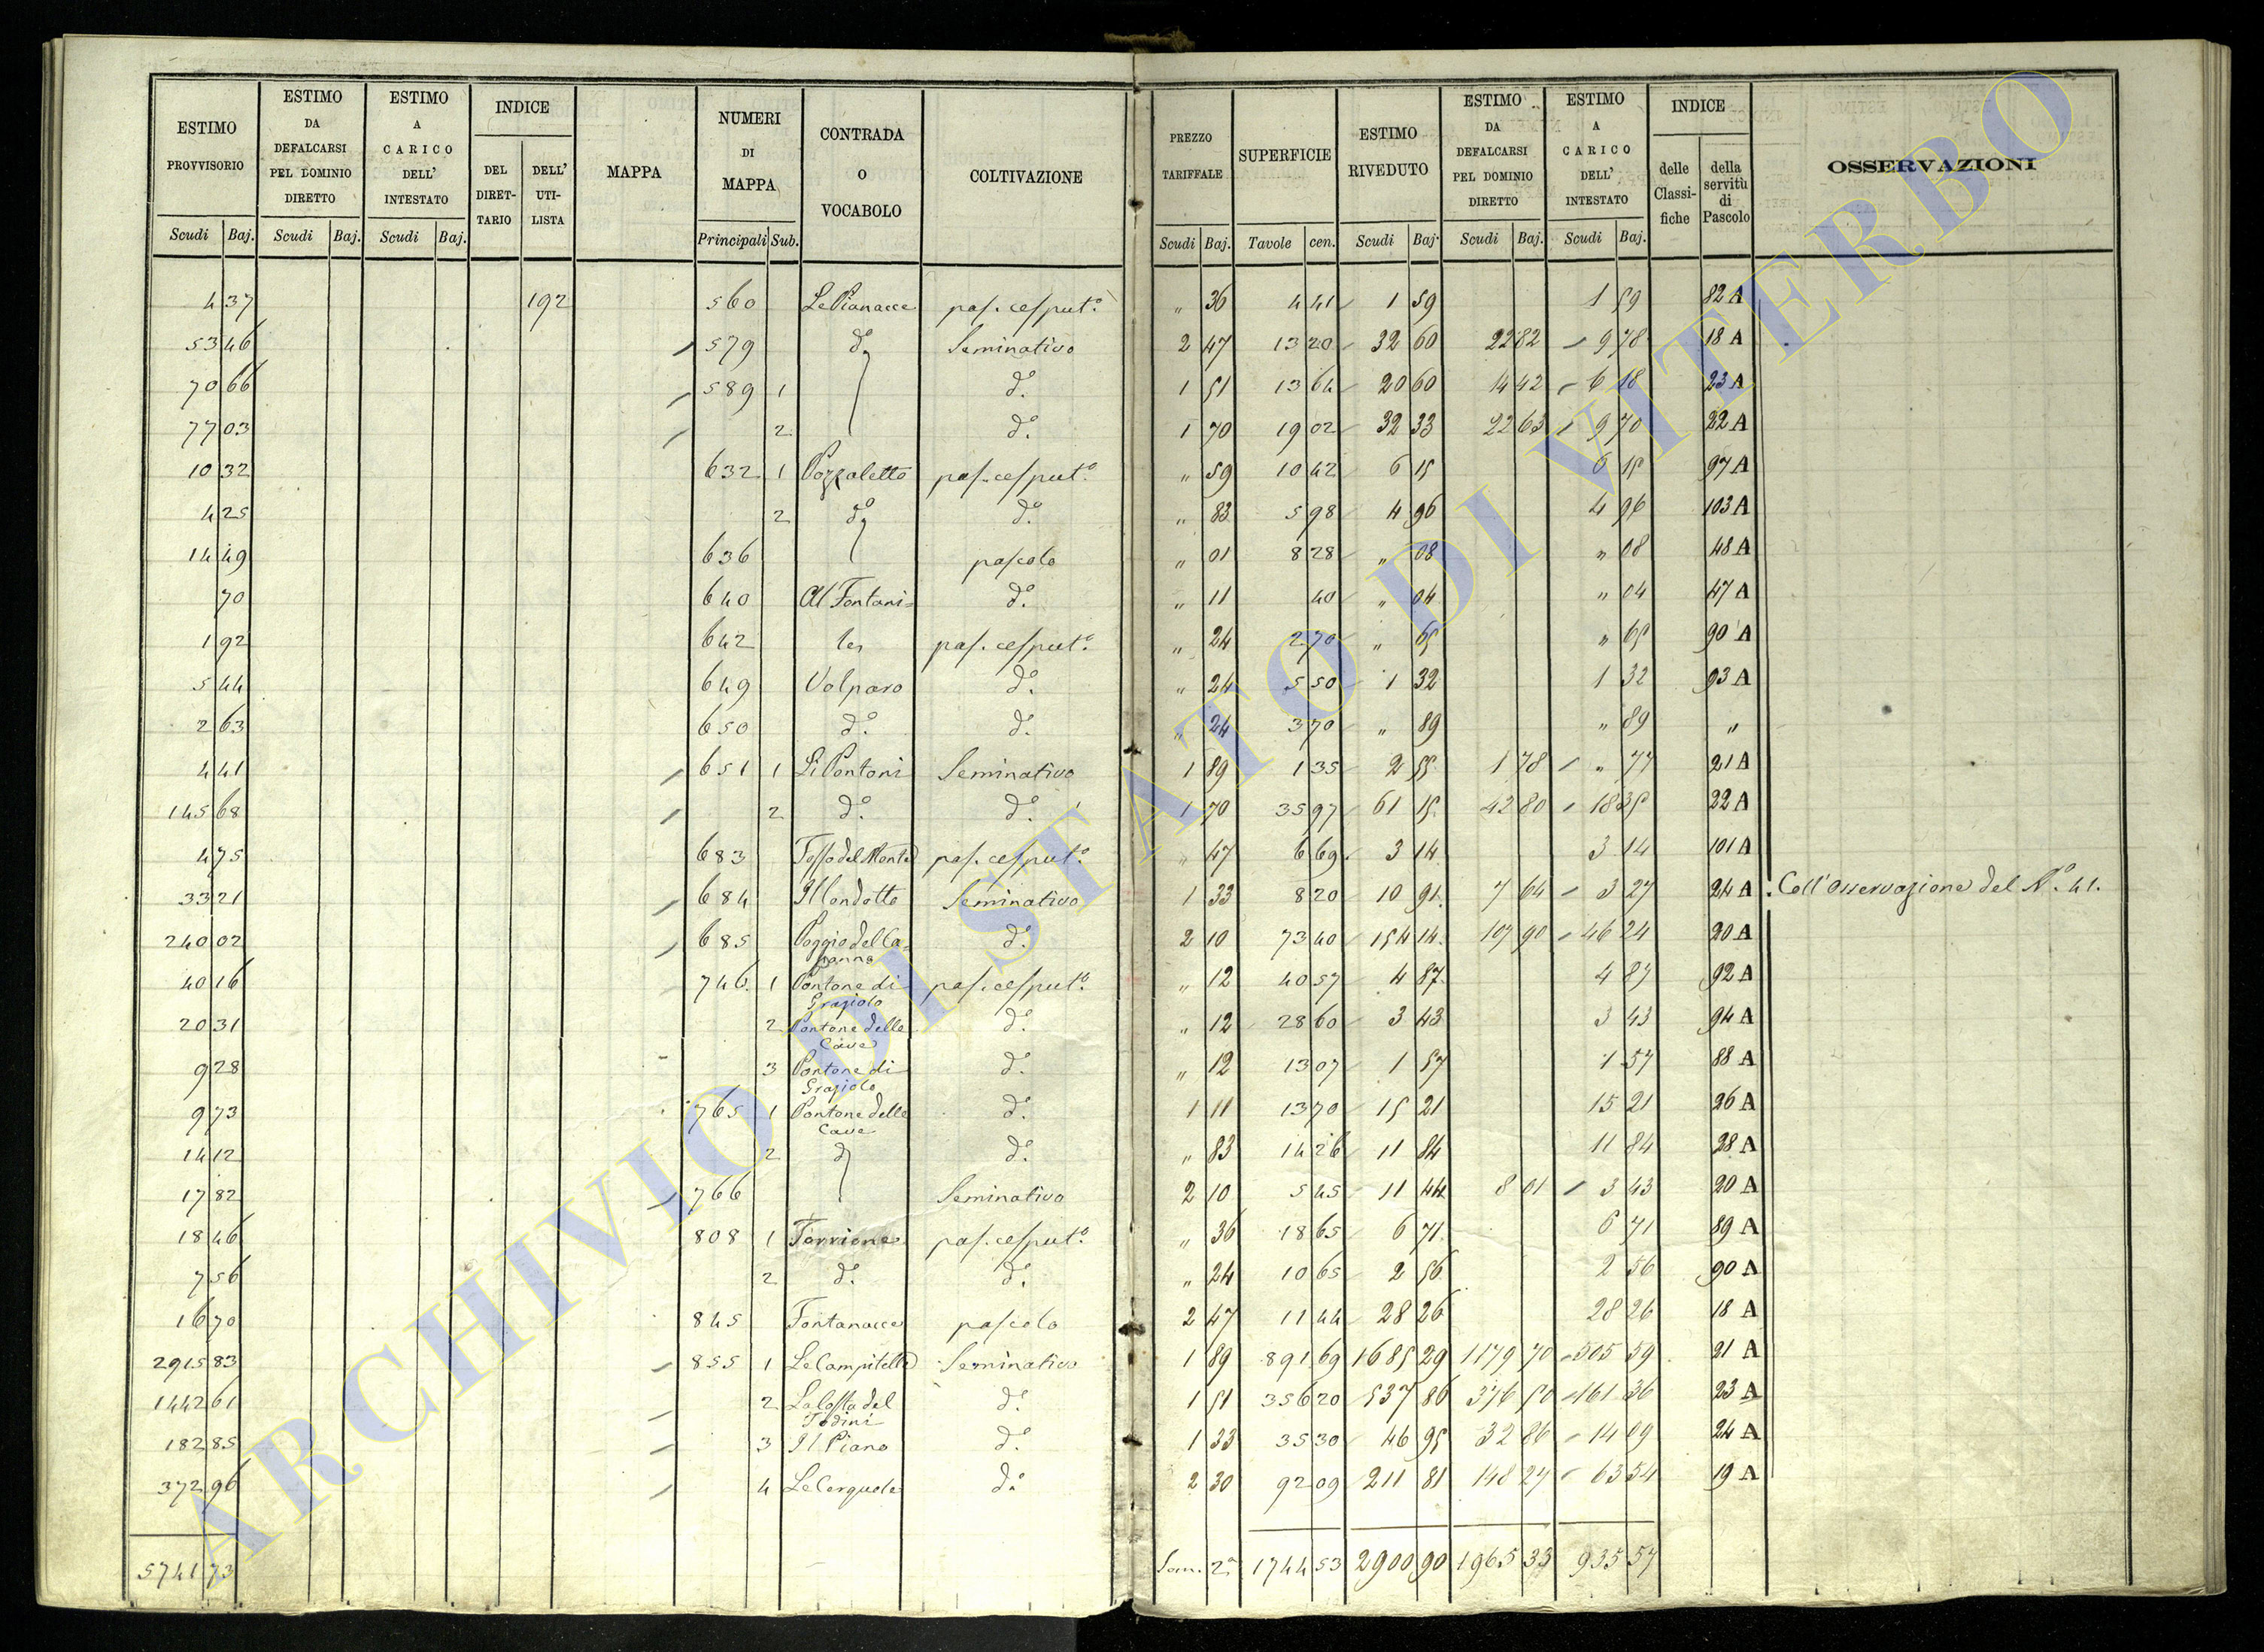 ESTIMO PROVVISORIO | ESTIMO DA DEFALCARSI PEL DOMINIO DIRETTO | ESTIMO A CARICO DELL' INTESTATO | INDICE | MAPPA | NUMERI DI MAPPA | CONTRADA O VOCABOLO | COLTIVAZIONE | PREZZO TARIFFALE | SUPERFICIE | ESTIMO RIVEDUTO | ESTIMO DA DEFALCARSI PEL DOMINIO DIRETTO | ESTIMO A CARICO DELL' INTESTATO | INDICE | OSSERVAZIONI
DEL DIRETTARIO | DELL' UTILISTA | delle Classifiche | della servitù di Pascolo
Scudi | Baj. | Scudi | Baj. | Scudi | Baj. | Principali | Sub. | Scudi | Baj. | Tavole | cen. | Scudi | Baj. | Scudi | Baj. | Scudi | Baj.
4 37 | 192 | 560 | Le Pianacce | pas. cesput.o | " 36 | 4 41 | 1 59 | 1 59 | 82 A
53 46 | 579 | d.o | Seminativo | 2 47 | 13 20 | 32 60 | 22 82 | 9 78 | 18 A
70 66 | 589 | 1 | d.o | 1 51 | 13 64 | 20 60 | 14 42 | 6 18 | 23 A
77 03 | 2 | d.o | 1 70 | 19 02 | 32 33 | 22 63 | 9 70 | 22 A
10 32 | 632 | 1 | Pozzaletto | pas. cesput.o | " 59 | 10 42 | 6 15 | 6 15 | 97 A
4 25 | 2 | d.o | d.o | " 83 | 5 98 | 4 96 | 4 96 | 103 A
14 49 | 636 | pascolo | " 01 | 8 28 | " 08 | " 08 | 48 A
70 | 640 | Al Fontani= | d.o | " 11 | 40 | " 04 | " 04 | 47 A
1 92 | 642 | le | pas. cesput.o | " 24 | 2 70 | " 65 | " 65 | 90 A
5 44 | 649 | Volparo | d.o | " 24 | 5 50 | 1 32 | 1 32 | 93 A
2 63 | 650 | d.o | d.o | " 24 | 3 70 | " 89 | " 89 | "
4 41 | 651 | 1 | Li Pontoni | Seminativo | 1 89 | 1 35 | 2 55 | 1 78 | " 77 | 21 A
145 68 | 2 | d.o | d.o | 1 70 | 35 97 | 61 15 | 42 80 | 18 35 | 22 A
4 75 | 683 | Fosso del Monte | pas. cesput.o | " 47 | 6 69 | 3 14 | 3 14 | 101 A
33 21 | 684 | Seminativo | 1 33 | 8 20 | 10 91 | 7 64 | 3 27 | 24 A | Coll'osservazione del N.o 41.
240 02 | 685 | Poggio del Ca= | d.o | 2 10 | 73 40 | 154 14 | 107 90 | 46 24 | 20 A
panna
40 16 | 746 | 1 | Pontone di | pas. cesput.o | " 12 | 40 57 | 4 87 | 4 87 | 92 A
Graziolo
20 31 | 2 | Pontone delle | d.o | " 12 | 28 60 | 3 43 | 3 43 | 94 A
Cave
9 28 | 3 | Pontone di | d.o | " 12 | 13 07 | 1 57 | 1 57 | 88 A
Graziolo
9 73 | 765 | 1 | Pontone delle | d.o | 1 11 | 13 70 | 15 21 | 15 21 | 26 A
Cave
14 12 | 2 | d.o | d.o | " 83 | 14 26 | 11 84 | 11 84 | 28 A
17 82 | 766 | Seminativo | 2 10 | 5 45 | 11 44 | 8 01 | 3 43 | 20 A
18 46 | 808 | 1 | Torrione | pas. cesput.o | " 36 | 18 65 | 6 71 | 6 71 | 89 A
7 56 | 2 | d.o | d.o | " 24 | 10 65 | 2 56 | 2 56 | 90 A
16 70 | 845 | Fontanacce | pascolo | 2 47 | 11 44 | 28 26 | 28 26 | 18 A
2915 83 | 855 | 1 | Le Campitelle | Seminativo | 1 89 | 891 69 | 1685 29 | 1179 70 | 505 59 | 21 A
1442 61 | 2 | La Costa del | d.o | 1 51 | 356 20 | 537 86 | 376 50 | 161 36 | 23 A
Todini
182 85 | 3 | Il Piano | d.o | 1 33 | 35 30 | 46 95 | 32 86 | 14 09 | 24 A
372 96 | 4 | Le Cerquole | d.o | 2 30 | 92 09 | 211 81 | 148 27 | 63 54 | 19 A
5741 73 | Som. 2.a | 1744 53 | 2900 90 | 1965 33 | 935 57
ARCHIVIO DI STATO DI VITERBO